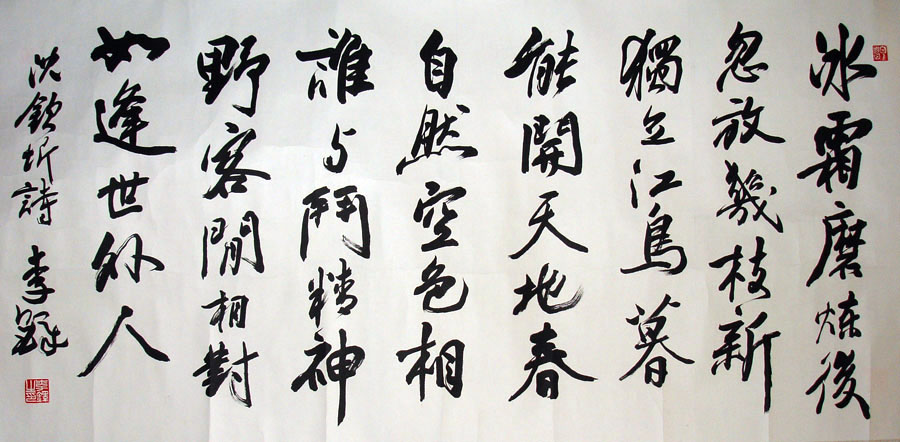 冰霜磨煉後
忽放幾枝新
獨立江島暮
能開天地春
自然空色相
誰与鬥精神
野客閒相對
如逢世外人
沈欽圻詩 李鐸